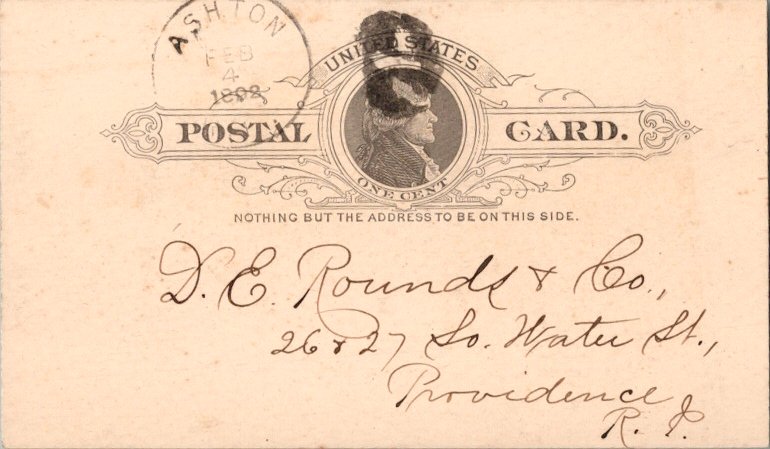 ASHTON
FEB
4
1892
UNITED STATES
POSTAL CARD.
ONE CENT
NOTHING BUT THE ADDRESS TO BE ON THIS SIDE.
D. E. Rounds & Co.,
26 & 27 So. Water St.,
Providence
R. I.